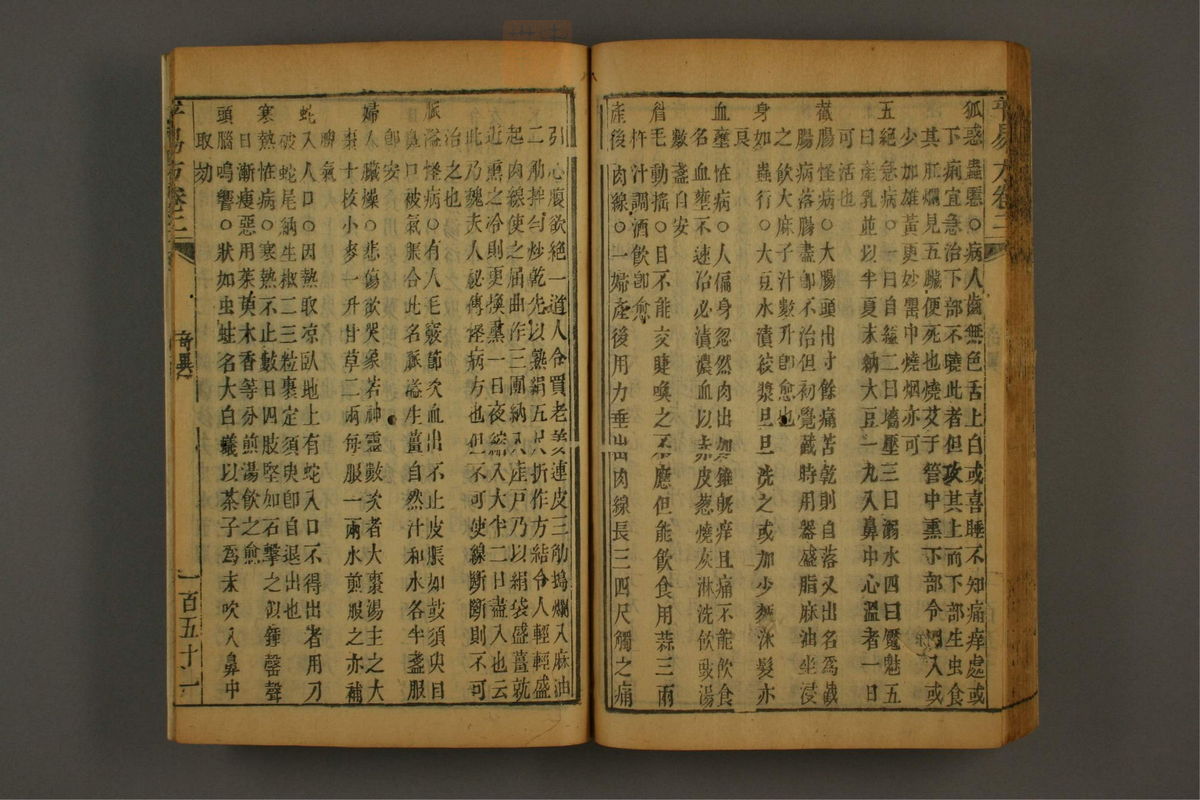 狐惑蟲𧏾○病人齒無色舌上白或喜睡不知痛痒處或
下痢宜急治下部不曉此者但攻其上而下部生虫食
其肛爛見五臟便死也燒艾于管中熏下部令烟入或
少加雄黃更妙罌中燒烟亦可
五絕急病○一曰自縊二曰墻壓三曰溺水四曰魘魅五
曰產乳並以半夏末納大豆一丸入鼻中心溫者一日
可活也
截腸怪病○大腸頭出寸餘痛苦乾則自落又出名爲截
腸病落腸盡卽不治但初覺截時用器盛脂麻油坐浸
之飲大麻子汁數升卽愈也
身如蟲行○大豆水漬絞漿旦旦洗之或加少麵沐髮亦
良
血壅怪病○人偏身忽然肉出如錐旣痒且痛不能飲食
名血壅不速治必潰濃血以赤皮葱燒灰淋洗飲豉湯
數盞自安
眉毛動搖○目不能交睫喚之不應但能飲食用蒜三兩
杵汁調酒飲卽愈
產後肉線○一婦產後用力垂出肉線長三四尺觸之痛
引心腹欲絕一道人令買老姜連皮三觔搗爛入麻油
二觔拌勻炒乾先以熟絹五尺折作方結令人輕輕盛
起肉線使之屈曲作三團納入產戶乃以絹袋盛薑就
近熏之冷則更換熏一日夜縮入大半二日盡入也云
此乃魏夫人秘傳怪病方也但不可使線斷斷則不可
治之也
脈溢怪病○有人毛竅節次血出不止皮脹如鼓須臾目
鼻口被氣脹合此名脈溢生薑自然汁和水各半盞服
卽安
婦人臟燥○悲傷欲哭象若神靈數欠者大棗湯主之大
棗十枚小麥一升甘草二兩每服一兩水煎服之亦補
脾氣
蛇入人口○因熱取凉臥地上有蛇入口不得出者用刀
破蛇尾納生椒二三粒裹定須臾卽自退出也
寒熱怪病○寒熱不止數日四肢堅如石擊之似鍾磬聲
日漸瘦惡用茱萸木香等分煎湯飲之愈
頭腦鳴響○狀如虫蛀名大白蟻以茶子爲末吹入鼻中
取効
平易方卷二
奇異
一百五十一